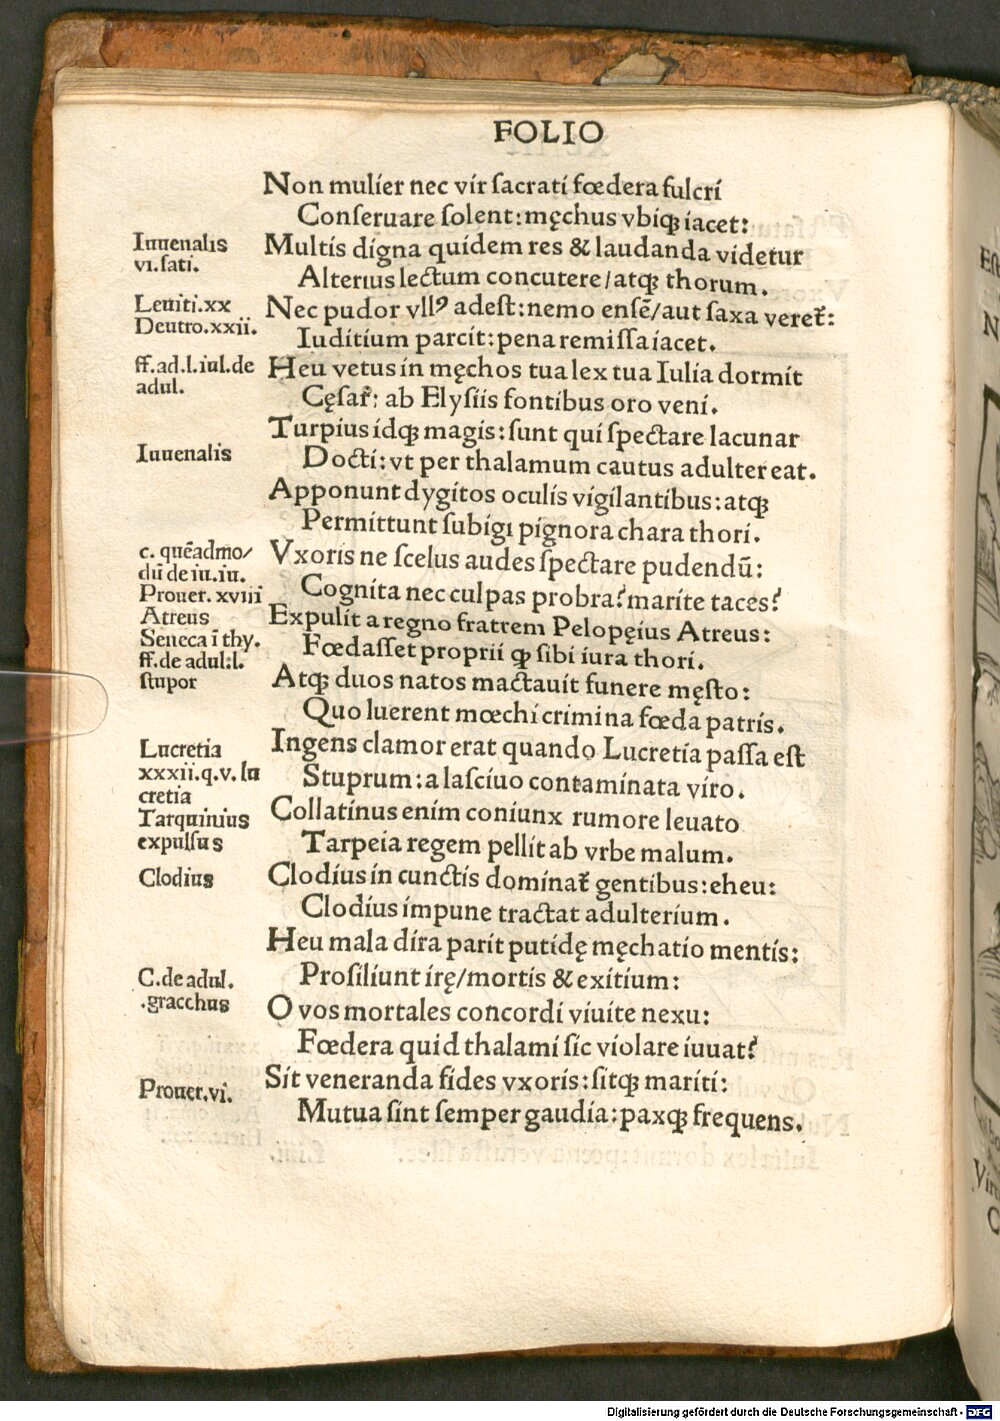 FOLIO
Non mulier nec vir sacrati fœdera fulcri
Conseruare solent: męchus vbiqꝫ iacet:
Iuuenalis
vi. sati.
Multis digna quidem res & laudanda videtur
Alterius lectum concutere/atqꝫ thorum.
Leuiti.xx
Deutro.xxii.
Nec pudor vllꝰ adest: nemo ensē/aut saxa veret᷑:
Iuditium parcit: pena remissa iacet.
ff.ad.l.iul.de
adul.
Heu vetus in męchos tua lex tua Iulia dormit
Cęsar᷑: ab Elysiis fontibus oro veni.
Turpius idqꝫ magis: sunt qui spectare lacunar
Iuuenalis
Docti: vt per thalamum cautus adulter eat.
Apponunt dygitos oculis vigilantibus: atqꝫ
Permittunt subigi pignora chara thori.
c. quēadmo/
dū de iu.iu.
Prouer. xviii
Vxoris ne scelus audes spectare pudendū:
Cognita nec culpas probra? marite taces?
Atreus
Seneca ī thy.
ff.de adul:l.
stupor
Expulit a regno fratrem Pelopęius Atreus:
Fœdasset proprii ꝙ sibi iura thori.
Atqꝫ duos natos mactauit funere męsto:
Quo luerent mœchi crimina fœda patris.
Lucretia
xxxii.q.v. lu
cretia
Tarquinius
expulsus
Ingens clamor erat quando Lucretia passa est
Stuprum: a lasciuo contaminata viro.
Collatinus enim coniunx rumore leuato
Tarpeia regem pellit ab vrbe malum.
Clodius
Clodius in cunctis dominat᷑ gentibus: eheu:
Clodius impune tractat adulterium.
Heu mala dira parit putidę męchatio mentis:
C.de adul.
.gracchus
Prosiliunt irę/mortis & exitium:
O vos mortales concordi viuite nexu:
Fœdera quid thalami sic violare iuuat?
Prouer.vi.
Sit veneranda fides vxoris: sitqꝫ mariti:
Mutua sint semper gaudia: paxqꝫ frequens.
Digitalisierung gefördert durch die Deutsche Forschungsgemeinschaft - DFG